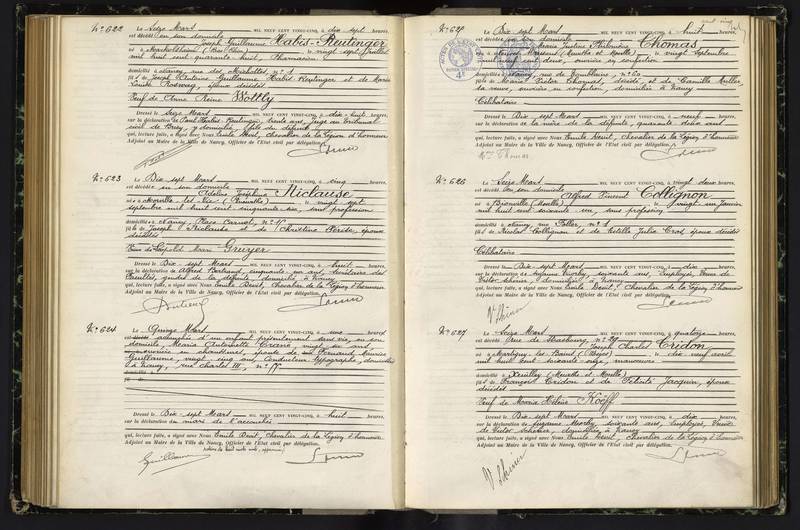 N° 622
Le Seize Mars MIL NEUF CENT VINGT-CINQ, à dix sept heures,
est décédé en son domicile
Joseph Guillaume Habis-Reutinger
né à Markolsheim (Bas Rhin) le vingt sept Juillet
mil huit cent quarante huit, Pharmacien
domicilié à Nancy, rue des Michottes n° 1
fils de Joseph Antoine Guillaume Habis Reutinger et de Marie
Louise Rosswag, époux décédés
Veuf de Anne Reine Wottly
Dressé le Seize Mars MIL NEUF CENT VINGT-CINQ, à dix-huit heures,
sur la déclaration de Paul Habis Reutinger, trente ans, Juge au Tribunal
civil de Briey, y domicilié, fils du défunt
qui, lecture faite, a signé avec Nous Emile Devit, Chevalier de la Légion d'honneur
Adjoint au Maire de la Ville de Nancy, Officier de l'Etat civil par délégation.
N° 623
Le Dix sept Mars MIL NEUF CENT VINGT-CINQ, à cinq heures,
est décédée en son domicile
Adeline Joséphine Niclause
née à Morville-les-Vic (Moselle) le vingt sept
septembre mil huit cent cinquante six, sans profession
domiciliée à Nancy, Place Carnot, n°
fille de Joseph Niclause et de Christine Périse, époux
décédés
Veuve de Léopold Marie Greuzer
Dressé le Dix-sept Mars MIL NEUF CENT VINGT-CINQ, à huit heures,
sur la déclaration de Alfred Bertrand, cinquante un ans,
gendre de la défunte, domicilié à Nancy
qui, lecture faite, a signé avec Nous Emile Devit, Chevalier de la Légion d'honneur
Adjoint au Maire de la Ville de Nancy, Officier de l'Etat civil par délégation.
N° 624
Le Quinze Mars MIL NEUF CENT VINGT-CINQ, à cinq heures
est accouchée d'un enfant présentement sans vie, en son
domicile, Maria Antoinette Crano, vingt six ans,
ouvrière en chaussures, épouse de Fernand Maurice
Guillaume, vingt cinq ans, Conducteur typographe, domiciliés
à Nancy, rue Charles III, n°
Dressé le Dix sept Mars MIL NEUF CENT VINGT-CINQ, à huit heures,
sur la déclaration du mari de l'accouchée
qui, lecture faite, a signé avec Nous Emile Devit, Chevalier de la Légion d'honneur
Adjoint au Maire de la Ville de Nancy, Officier de l'Etat civil par délégation.
Guillaume
cent cinq
N° 625
Le Dix sept Mars MIL NEUF CENT VINGT-CINQ, à huit heures,
est décédée en son domicile
Maria Justine Philomène Thomas
née à (Meurthe et Moselle) le vingt Septembre
mil neuf cent deux, ouvrière en confection
domiciliée à Nancy, rue de Tomblaine, n° 60
fille de Marie Victor Thomas, décédé, et de Camille Muller,
sa veuve, ouvrière en confection, domiciliée à Nancy
Célibataire
Dressé le Dix sept Mars MIL NEUF CENT VINGT-CINQ, à neuf heures,
sur la déclaration de la mère de la défunte, quarante deux ans
qui, lecture faite, a signé avec Nous Emile Devit, Chevalier de la Légion d'honneur
Adjoint au Maire de la Ville de Nancy, Officier de l'Etat civil par délégation.
Vve Thomas
N° 626
Le Seize Mars MIL NEUF CENT VINGT-CINQ, à vingt deux heures,
est décédé en son domicile
Alfred Vincent Collignon
né à Bionville (Moselle) le vingt un Janvier
mil huit cent soixante un, sans profession
domicilié à Nancy, rue Foller, n° 1
fils de Nicolas Collignon et de Julie Crod, époux décédés
Célibataire
Dressé le Dix-sept Mars MIL NEUF CENT VINGT-CINQ, à dix heures,
sur la déclaration de Suzanne Morby, soixante ans, Employée, Veuve de
Victor Scherrer, domiciliée à Nancy
qui, lecture faite, a signé avec Nous Emile Devit, Chevalier de la Légion d'honneur
Adjoint au Maire de la Ville de Nancy, Officier de l'Etat civil par délégation.
N° 627
Le Seize Mars MIL NEUF CENT VINGT-CINQ, à quatorze heures,
est décédé Rue de Strasbourg, n° 29
Joseph Charles Cridon
né à Martigny-les-Bains (Vosges) le dix neuf avril
mil huit cent soixante-onze, manoeuvre
domicilié à Xeuilley (Meurthe et Moselle)
fils de François Cridon et de Félicité Jacquin, époux
décédés
Veuf de Marie Hélène Kooff
Dressé le Dix-sept Mars MIL NEUF CENT VINGT-CINQ, à dix heures,
sur la déclaration de Suzanne Morby, soixante ans, Employée, Veuve
de Victor Scherrer, domiciliée à Nancy
qui, lecture faite, a signé avec Nous Emile Devit, Chevalier de la Légion d'honneur
Adjoint au Maire de la Ville de Nancy, Officier de l'Etat civil par délégation.